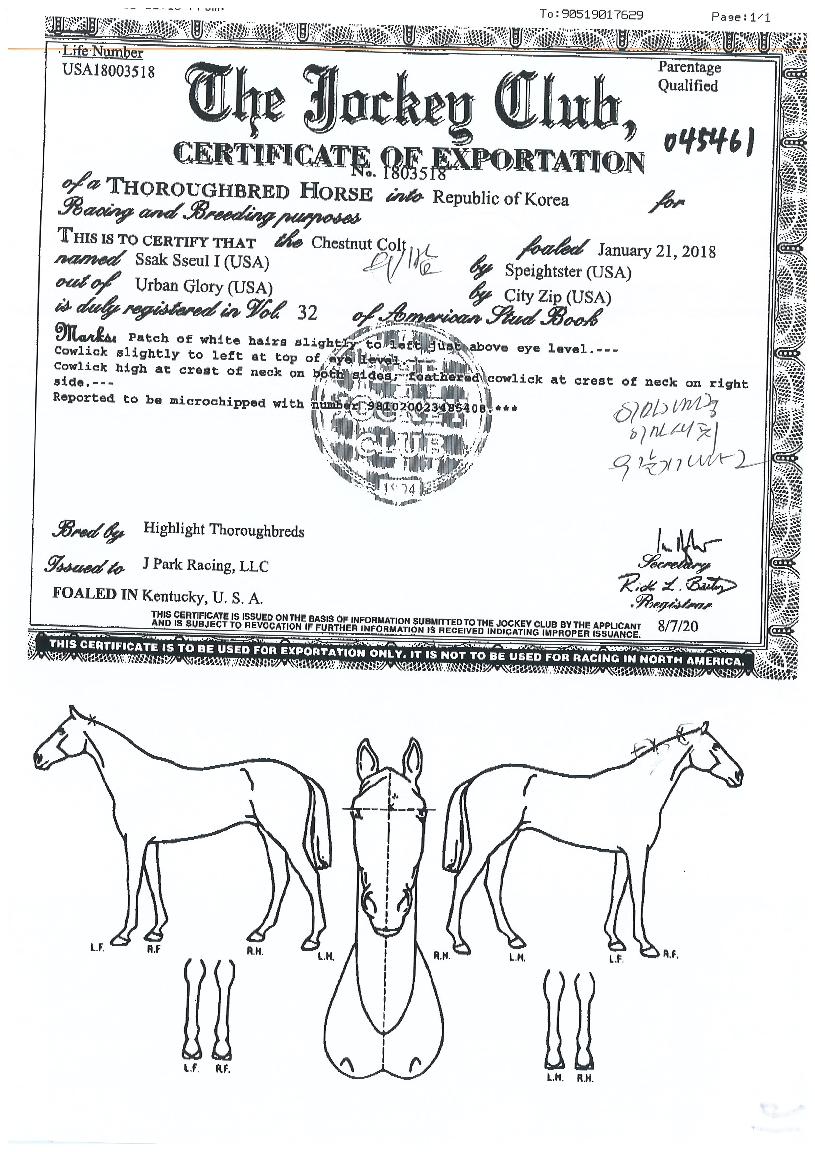 To:90519017629 Page:1/1
Life Number
USA18003518
Parentage
Qualified
The Jockey Club,
045461
CERTIFICATE OF EXPORTATION
No. 1803518
of a THOROUGHBRED HORSE into Republic of Korea for
Racing and Breeding purposes
THIS IS TO CERTIFY THAT the Chestnut Colt foaled January 21, 2018
named Ssak Sseul I (USA) by Speightster (USA)
out of Urban Glory (USA) by City Zip (USA)
is duly registered in Vol. 32 of American Stud Book
Marks: Patch of white hairs slightly to left just above eye level.---
Cowlick slightly to left at top of eye level.
Cowlick high at crest of neck on both sides; feathered cowlick at crest of neck on right
side.---
Reported to be microchipped with number 981020023485408.***
JOCKEY
CLUB
Bred by Highlight Thoroughbreds
Issued to J Park Racing, LLC
Secretary
FOALED IN Kentucky, U. S. A.
Registrar
THIS CERTIFICATE IS ISSUED ON THE BASIS OF INFORMATION SUBMITTED TO THE JOCKEY CLUB BY THE APPLICANT
AND IS SUBJECT TO REVOCATION IF FURTHER INFORMATION IS RECEIVED INDICATING IMPROPER ISSUANCE.
8/7/20
THIS CERTIFICATE IS TO BE USED FOR EXPORTATION ONLY. IT IS NOT TO BE USED FOR RACING IN NORTH AMERICA.
L.F. R.F R.H. L.H. R.H. L.H. L.F. R.F.
L.F. R.F. L.H. R.H.